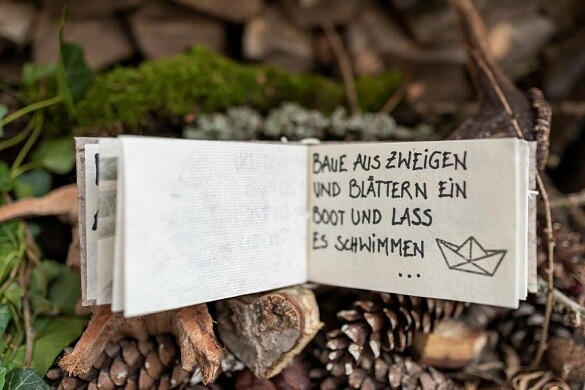 BAUE AUS ZWEIGEN
UND BLÄTTERN EIN
BOOT UND LASS
ES SCHWIMMEN
...